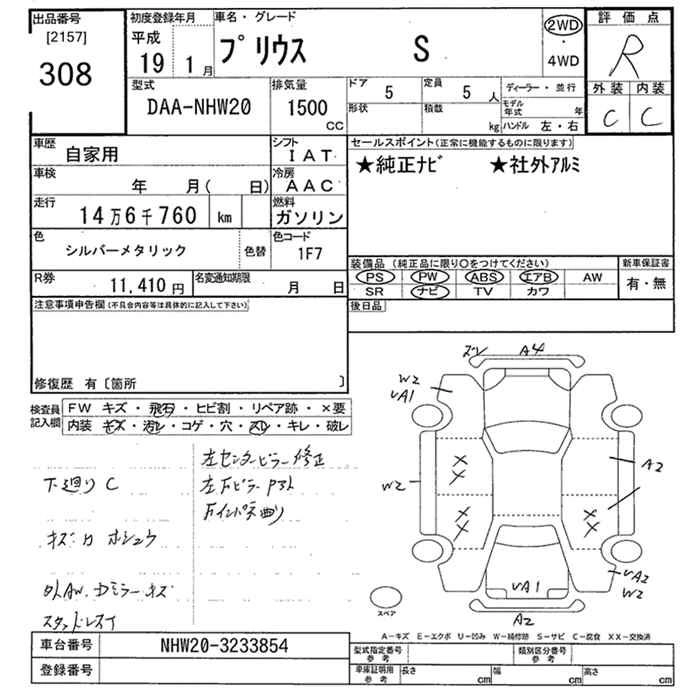 出品番号
[2157]
308
初度登録年月
平成
19 1月
車名・グレード
プリウス S
2WD
・
4WD
評価点
R
外装 内装
C C
型式
DAA-NHW20
排気量
1500
CC
ドア 5
定員 5 人
形状
積載 kg
ディーラー・並行
モデル年式 年
ハンドル 左・右
車歴 自家用
シフト IAT
車検 年 月( 日)
冷房 AAC
走行 14万6千760 km
燃料 ガソリン
色 シルバーメタリック 色替
色コード 1F7
R券 11,410円
名変通知期限 月 日
セールスポイント(正常に機能するものに限ります)
★純正ナビ ★社外アルミ
装備品 (純正品に限り〇をつけてください)
PS PW ABS エアB AW
SR ナビ TV カワ
新車保証書
有・無
後日品
注意事項申告欄(不具合内容等は具体的に記入して下さい)
修復歴 有〔箇所 〕
検査員記入欄
FW キズ・飛石・ヒビ割・リペア跡・×要
内装・キズ・汚レ・コゲ・穴・スレ・キレ・破レ
左センターピラー修正
下廻りC
キズ凹 ホシュウ
外AW.
ズレ A4
W2
VA1
W2
A2
VA2
W2
VA1
A2
スペア
A−キズ E−エクボ U−凹み W−補修跡 S−サビ C−腐食 XX−交換済
車台番号 NHW20-3233854
登録番号
型式指定番号参考
類別区分番号参考
車庫証明用参考
長さ cm
幅 cm
高さ cm